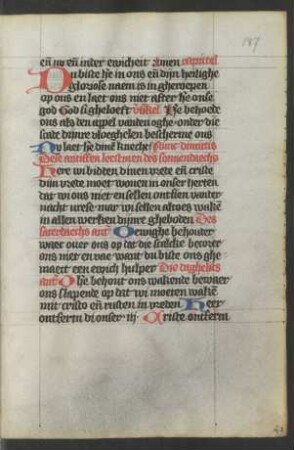 187
en̄ nu en̄ inder ewicheit Amen capittel
Du biste h̄e in ons en̄ dijn heilighe
gloriose naem is in gheroepen
op ons en laet ons niet after h̄e onse
god God si gheloeft v̄sikel. h̄e behoede
ons als den appel vanden oghe onder die
scade dijnre vloeghelen bescherme ons
Nu laet h̄e dinē knecht Nunc dimittis
Dese antiffen leestmen des sonnendaechs
Here wi bidden dinen vrede en̄ criste
dijn vrede moet wonen in onser herten
dat wi ons niet en sellen ontsien van der
nacht vrese mar wi sellen altoes wakē
in allen werken dijnre gheboden Des
saterdaechs ant̄ O ewighe behouder
waer over ons op dat die
ons niet en vae want du biste ons ghe
maect een ewich hulper Die daghelixs
ant̄ O h̄e behout ons wakende bewaer
ons slapende op dat wi moeten wakē
mit cristo en̄ rusten in vreden Heer
ontferm di onser iij Criste ontferm